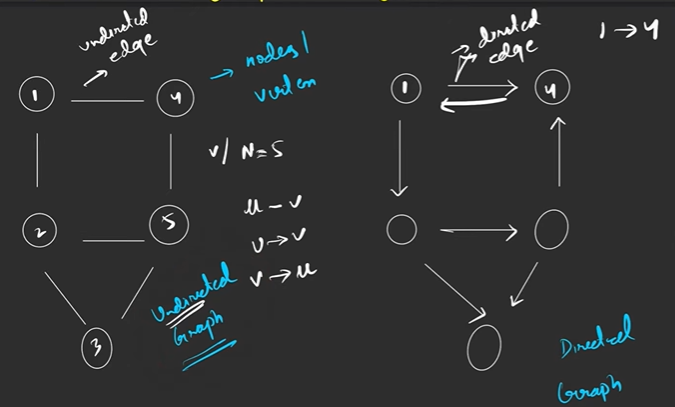 undirected
edge
→ nodes/
vertex
1
4
V/N=5
u – v
u→v
v→u
2
5
3
Undirected
Graph
→ directed
edge
1 → 4
1
4
Directed
Graph